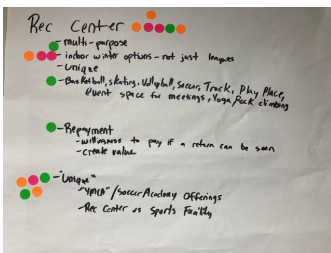 Rec Center
- multi-purpose
- indoor winter options - not just leagues
- unique
- Basketball, skating, Volleyball, soccer, Track, Play Place,
event space for meetings, Yoga, Rock climbing
- Repayment
- willingness to pay if a return can be seen
- create value
- "Unique"
- "YMCA"/Soccer Academy Offerings
- Rec Center vs Sports Facility